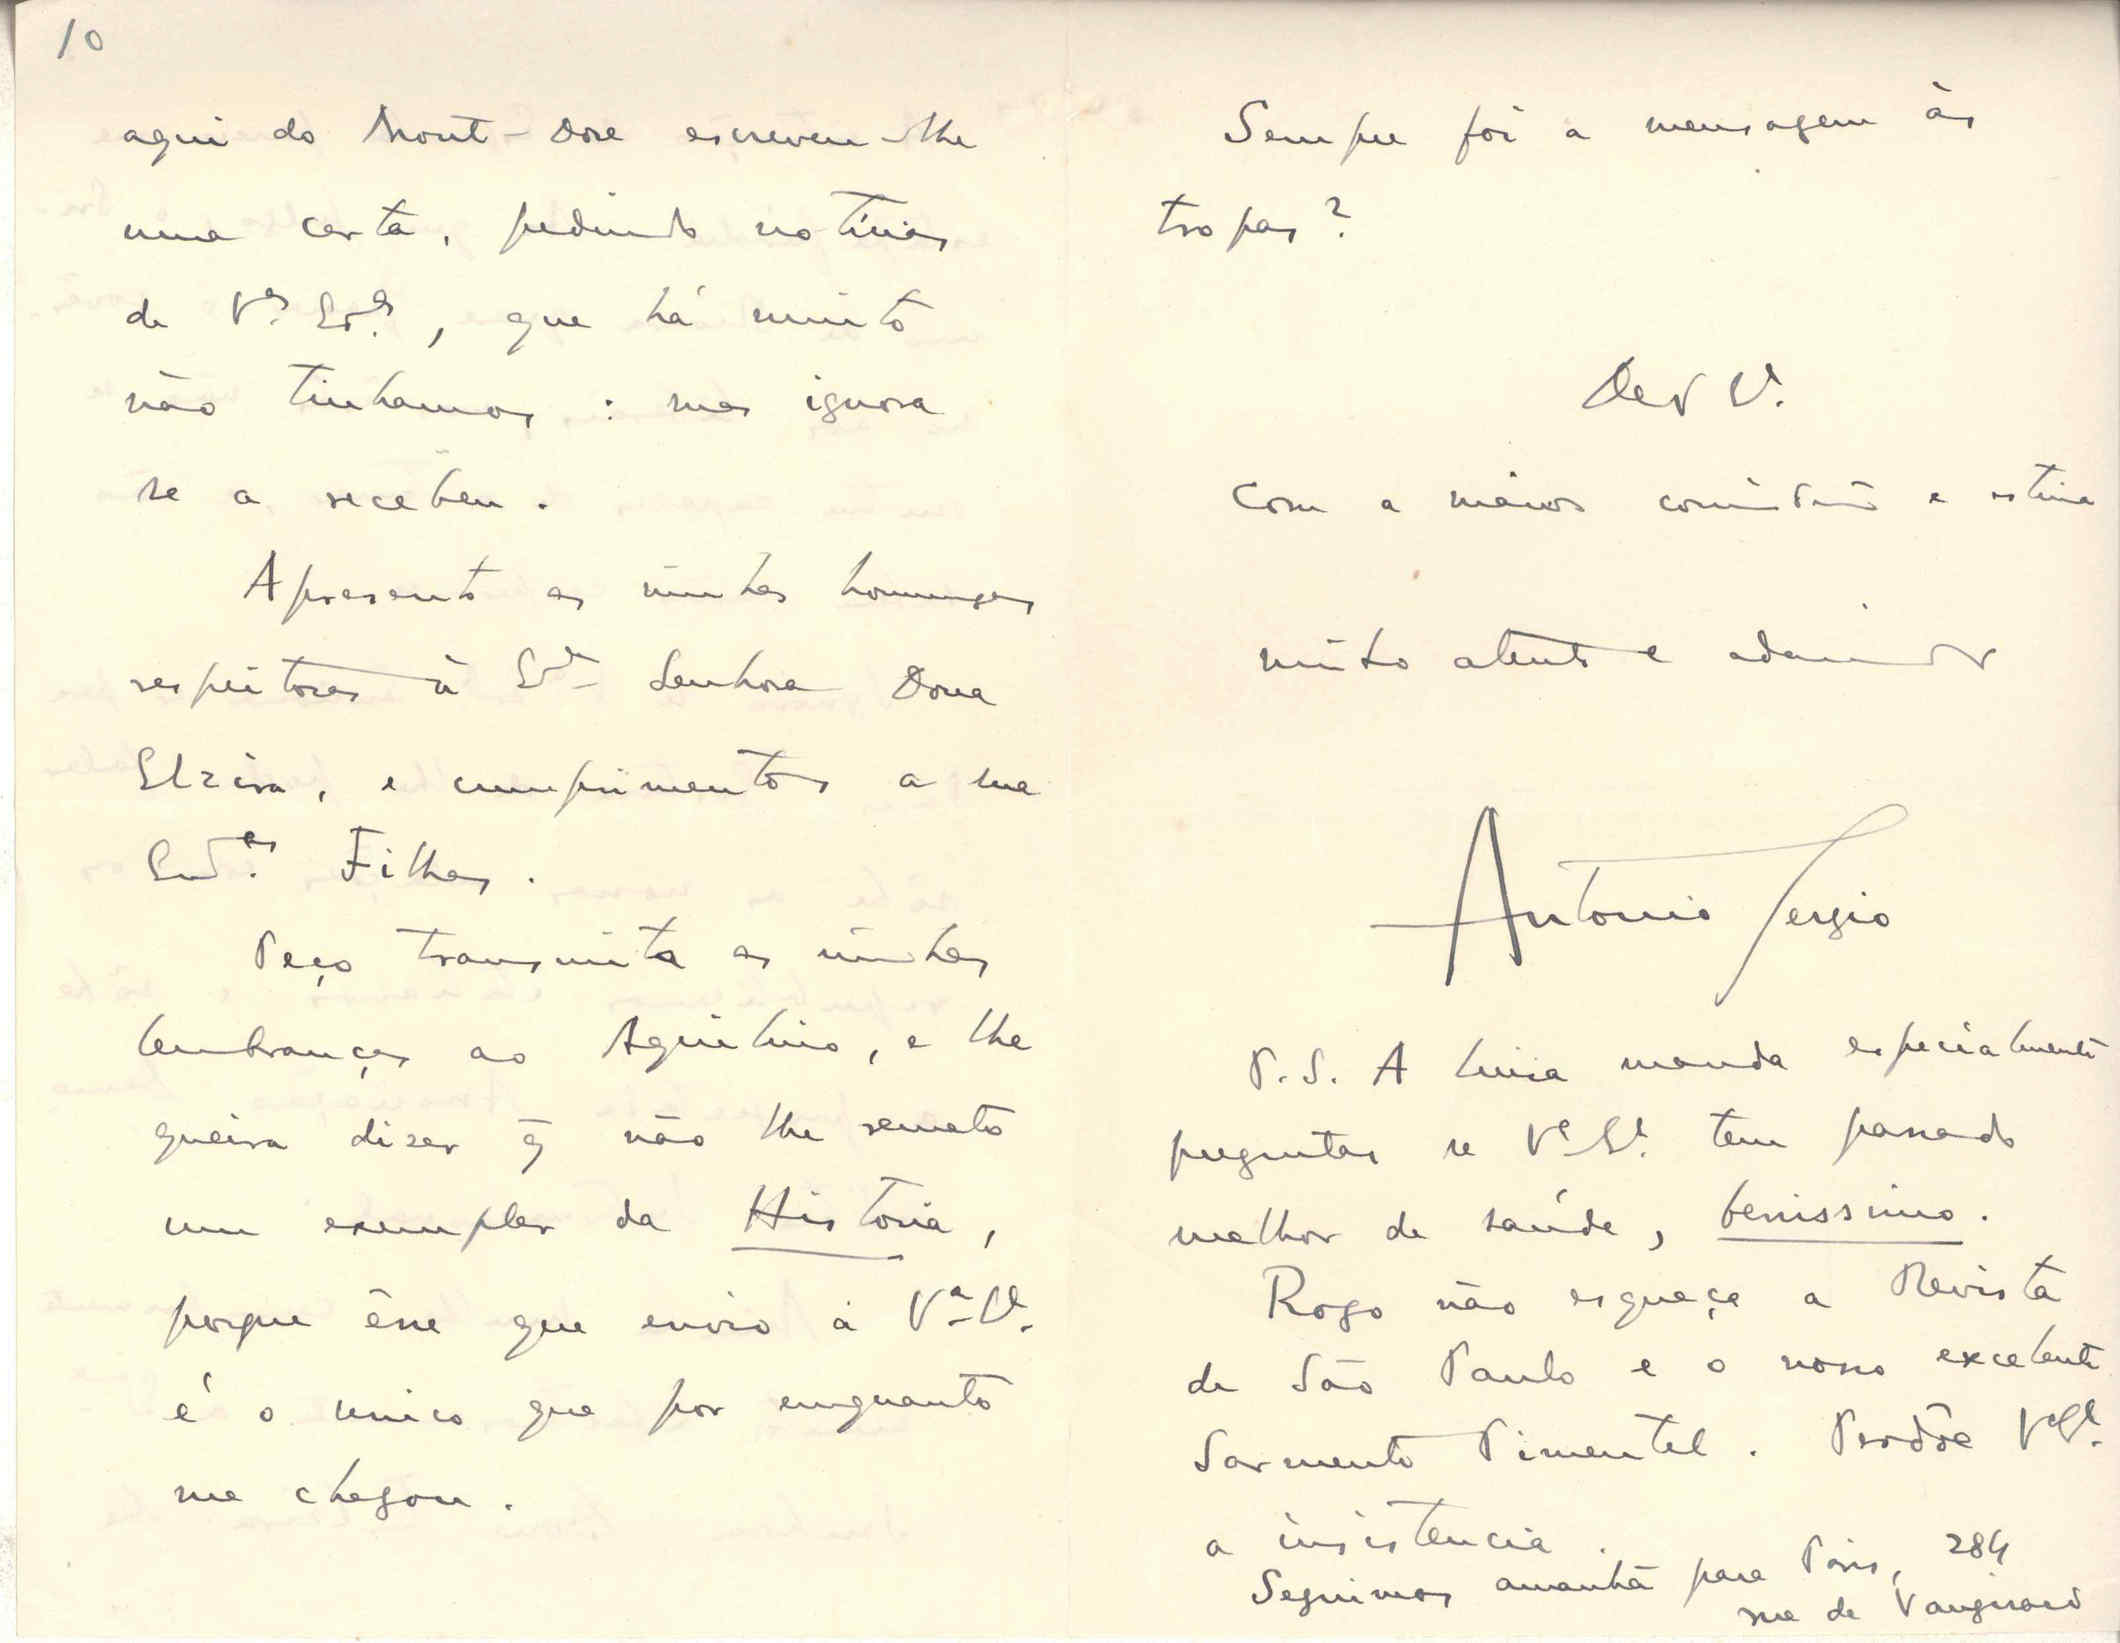 10
aqui do Mont-Dore escreveu-lhe
uma carta, pedindo notícias
de V.as Ex.as, que há muito
não tinhamos: mas ignora
se a recebeu.
Apresento as minhas homenagens
respeitosas à Ex.ma Senhora Dona
Elzira, e cumprimentos a sua
Ex.mas Filhas.
Peço transmita as minhas
lembranças ao Aquilino, e lhe
queira dizer q̃ não lhe remeto
um exemplar da Historia,
porque êsse que envio a V.a Ex.a
é o unico que por emquanto
me chegou.
Sempre foi a mensagem às
tropas?
De V. Ex.a
com a maior consideração e estima
muito atento e admirador
Antonio Sergio
P.S. A Luísa manda especialmente
preguntar se V.a Ex.a tem passado
melhor de saúde, benissimo.
Rogo não esqueça a Revista
de São Paulo e o nosso excelente
Sarmento Pimentel. Perdôe V.a Ex.a
a insistencia.
Seguimos amanhã para Paris, 284
rue de Vaugirard